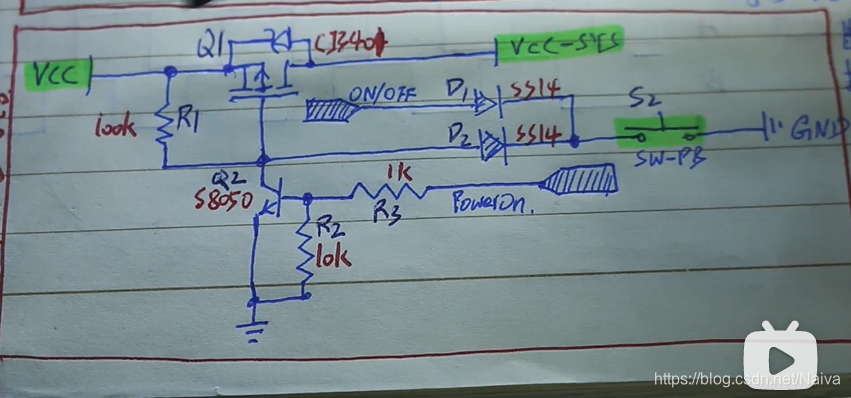 Q1
VCC
VCC-SYS
100k
R1
ON/OFF
D1
SS14
S2
D2
SS14
GND
SW-PB
Q2
S8050
1k
R3
PowerOn.
R2
10k
https://blog.csdn.net/Naiva